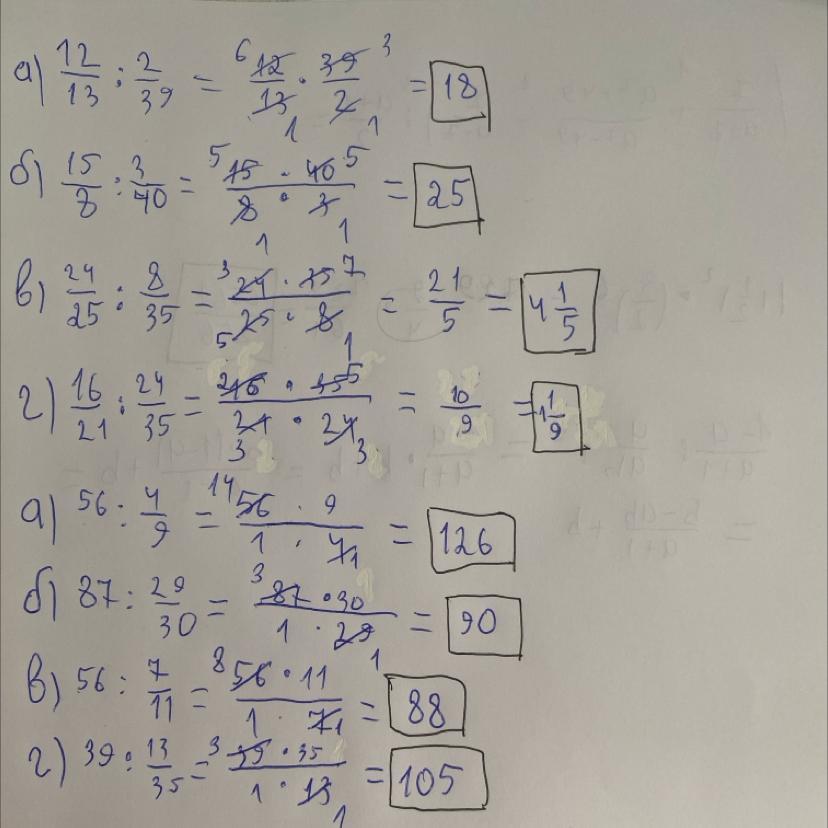 а) 12/13 : 2/39 = 6 12/13 1 · 39 3/2 1 = 18
б) 15/8 : 3/40 = 5 15 · 40 5/8 1 · 3 1 = 25
в) 24/25 : 8/35 = 3 24 · 35 7/5 25 · 8 1 = 21/5 = 4 1/5
г) 16/21 : 24/35 = 2 16 · 35 5/21 3 · 24 3 = 10/9 = 1 1/9
а) 56 : 4/9 = 14 56 · 9/1 · 4 1 = 126
б) 87 : 29/30 = 3 87 · 30/1 · 29 1 = 90
в) 56 : 7/11 = 8 56 · 11/1 · 7 1 = 88
г) 39 : 13/35 = 3 39 · 35/1 · 13 1 = 105